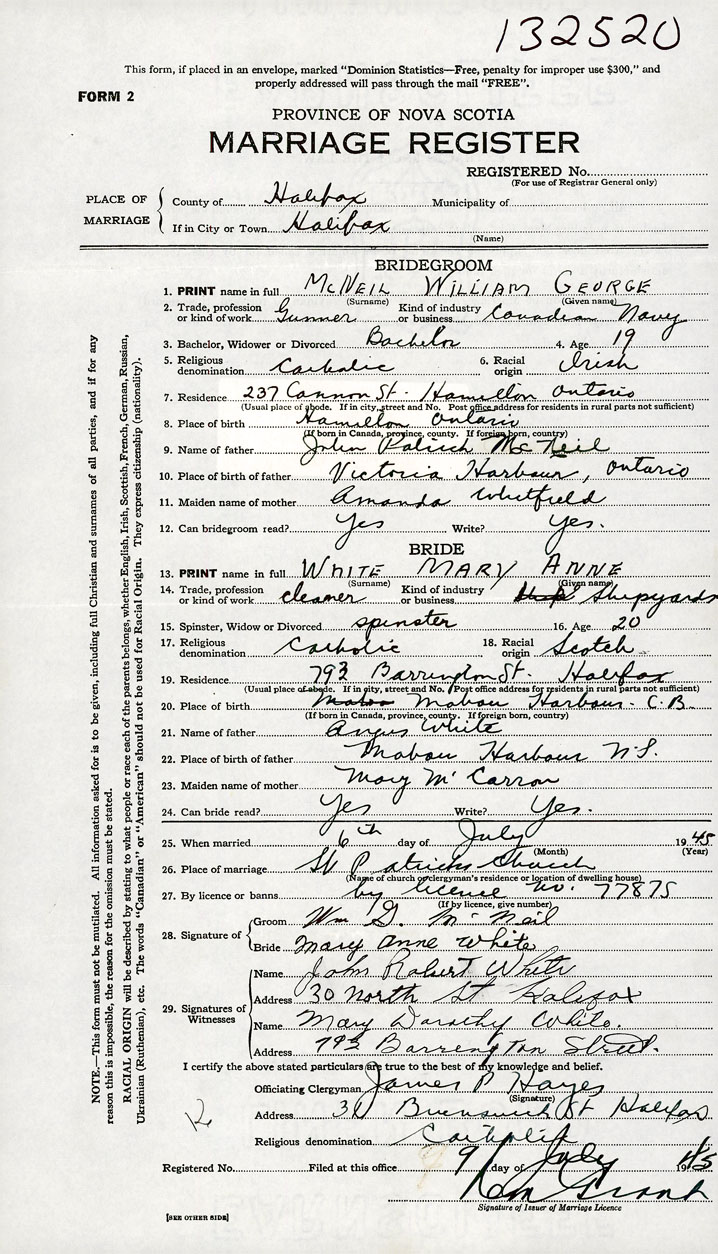 132520
This form, if placed in an envelope, marked “Dominion Statistics—Free, penalty for improper use $300,” and
properly addressed will pass through the mail “FREE”.
FORM 2
PROVINCE OF NOVA SCOTIA
MARRIAGE REGISTER
REGISTERED No.
(For use of Registrar General only)
PLACE OF MARRIAGE
County of Halifax Municipality of
If in City or Town Halifax
(Name)
BRIDEGROOM
1. PRINT name in full McNEIL WILLIAM GEORGE
(Surname) (Given name)
2. Trade, profession or kind of work Gunner Kind of industry or business Canadian Navy
3. Bachelor, Widower or Divorced Bachelor 4. Age 19
5. Religious denomination Catholic 6. Racial origin Irish
7. Residence 237 Cannon St. Hamilton Ontario
(Usual place of abode. If in city, street and No. Post office address for residents in rural parts not sufficient)
8. Place of birth Hamilton Ontario
(If born in Canada, province, county. If foreign born, country)
9. Name of father John Patrick McNeil
10. Place of birth of father Victoria Harbour, Ontario
11. Maiden name of mother Amanda Whitfield
12. Can bridegroom read? Yes Write? Yes.
BRIDE
13. PRINT name in full WHITE MARY ANNE
(Surname) (Given name)
14. Trade, profession or kind of work cleaner Kind of industry or business Shipyards
15. Spinster, Widow or Divorced spinster 16. Age 20
17. Religious denomination Catholic 18. Racial origin Scotch
19. Residence 793 Barrington St. Halifax
(Usual place of abode. If in city, street and No. Post office address for residents in rural parts not sufficient)
20. Place of birth Mabou Harbour - C.B.
(If born in Canada, province, county. If foreign born, country)
21. Name of father Angus White
22. Place of birth of father Mabou Harbour N.S.
23. Maiden name of mother Mary McCarron
24. Can bride read? Yes Write? Yes.
25. When married 6th day of July 1945
(Month) (Year)
26. Place of marriage St Patricks Church
(Name of church or clergyman's residence or location of dwelling house)
27. By licence or banns by licence no. 77875
(If by licence, give number)
28. Signature of
Groom Wm G. McNeil
Bride Mary Anne White
29. Signatures of Witnesses
Name John Robert White
Address 30 North St Halifax
Name Mary Dorothy White.
Address 793 Barrington Street.
I certify the above stated particulars are true to the best of my knowledge and belief.
Officiating Clergyman James P Hayes
(Signature)
Address Brunswick St Halifax
Religious denomination Catholic
Registered No. Filed at this office 9 day of July 1945
Grant
Signature of Issuer of Marriage Licence
[SEE OTHER SIDE]
NOTE.—This form must not be mutilated. All information asked for is to be given, including full Christian and surnames of all parties, and if for any
reason this is impossible, the reason for the omission must be stated.
RACIAL ORIGIN will be described by stating to what people or race each of the parents belongs, whether English, Irish, Scottish, French, German, Russian,
Ukrainian (Ruthenian), etc. The words “Canadian” or “American” should not be used for Racial Origin. They express citizenship (nationality).